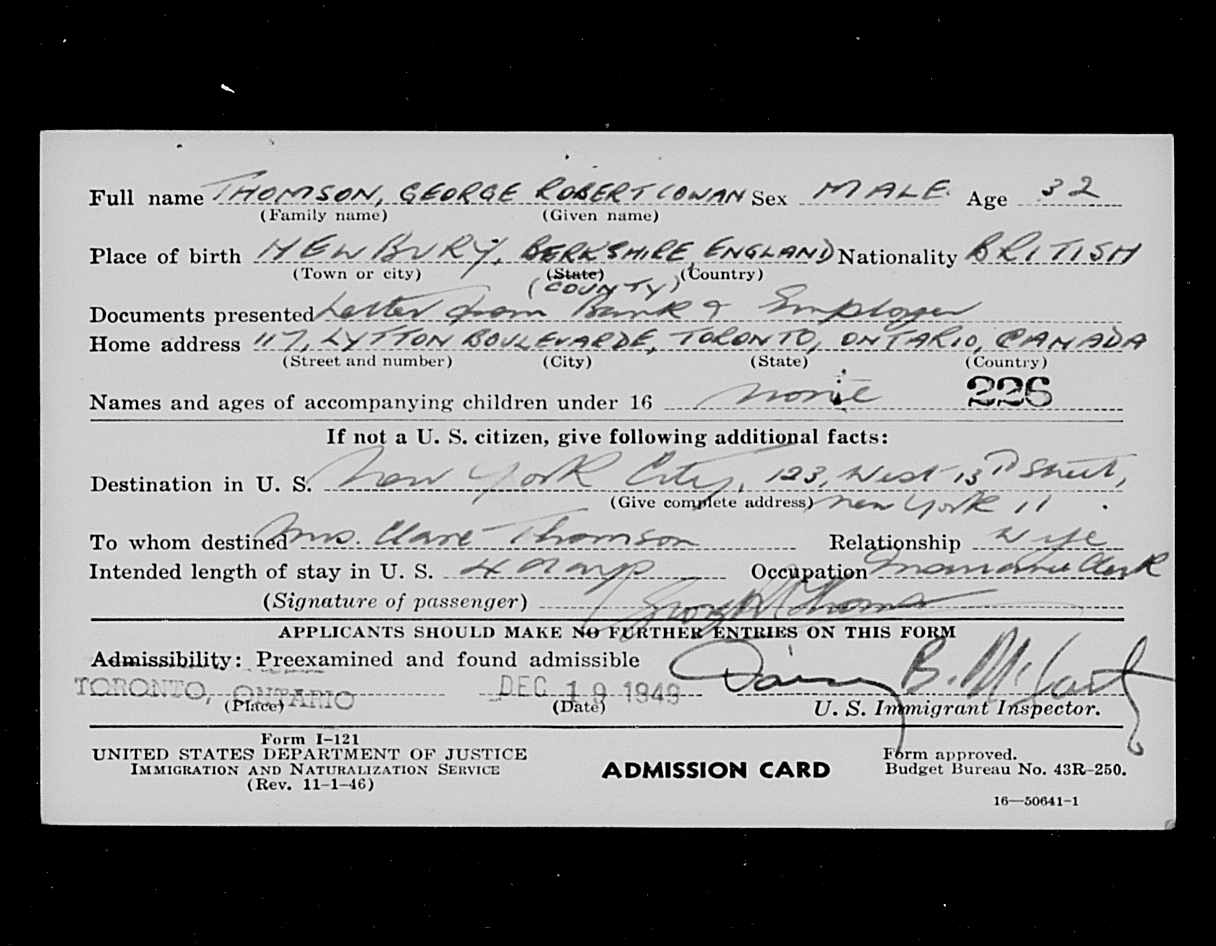 Full name THOMSON, GEORGE ROBERT COWAN Sex MALE. Age 32
(Family name) (Given name)
Place of birth NEWBURY, BERKSHIRE, ENGLAND Nationality BRITISH
(Town or city) (State) (Country)
(COUNTY)
Documents presented Letter from Bank & Employer
Home address 117, LYTTON BOULEVARDE, TORONTO, ONTARIO, CANADA
(Street and number) (City) (State) (Country)
Names and ages of accompanying children under 16 None 226
If not a U. S. citizen, give following additional facts:
Destination in U. S. New York City, 123, West 13th Street,
(Give complete address) New York 11
To whom destined Mrs. Clare Thomson Relationship Wife
Intended length of stay in U. S. 4 days Occupation Clerk
(Signature of passenger)
APPLICANTS SHOULD MAKE NO FURTHER ENTRIES ON THIS FORM
Admissibility: Preexamined and found admissible
TORONTO, ONTARIO DEC 19 1949
(Place) (Date) U. S. Immigrant Inspector.
Form I-121
UNITED STATES DEPARTMENT OF JUSTICE
IMMIGRATION AND NATURALIZATION SERVICE
(Rev. 11-1-46)
ADMISSION CARD
Form approved.
Budget Bureau No. 43R-250.
16—50641-1